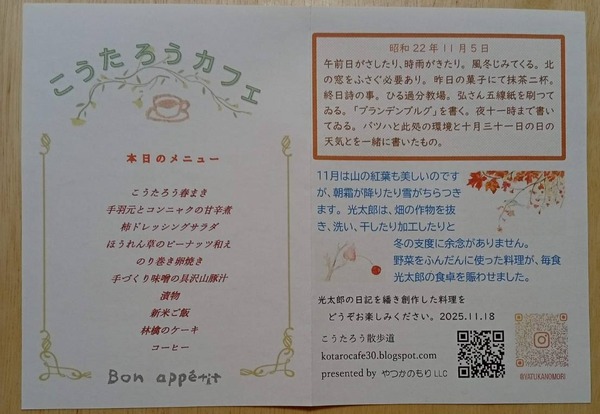 こうたろうカフェ
本日のメニュー
こうたろう春まき
手羽元とコンニャクの甘辛煮
柿ドレッシングサラダ
ほうれん草のピーナッツ和え
のり巻き卵焼き
手づくり味噌の具沢山豚汁
漬物
新米ご飯
林檎のケーキ
コーヒー
Bon appétit
昭和22年11月5日
午前日がさしたり、時雨がきたり。風冬じみてくる。北
の窓をふさぐ必要あり。昨日の菓子にて抹茶二杯。
終日詩の事。ひる過分教場。弘さん五線紙を刷つて
ゐる。「ブランデンブルグ」を書く。夜十一時まで書い
てゐる。バツハと此処の環境と十月三十一日の日の
天気とを一緒に書いたもの。
11月は山の紅葉も美しいのです
が、朝霜が降りたり雪がちらつき
ます。光太郎は、畑の作物を抜
き、洗い、干したり加工したりと
冬の支度に余念がありません。
野菜をふんだんに使った料理が、毎食
光太郎の食卓を賑わせました。
光太郎の日記を繙き創作した料理を
どうぞお楽しみください。2025.11.18
こうたろう散歩道
kotarocafe30.blogspot.com
presented by やつかのもり LLC
@YATUKANOMORI